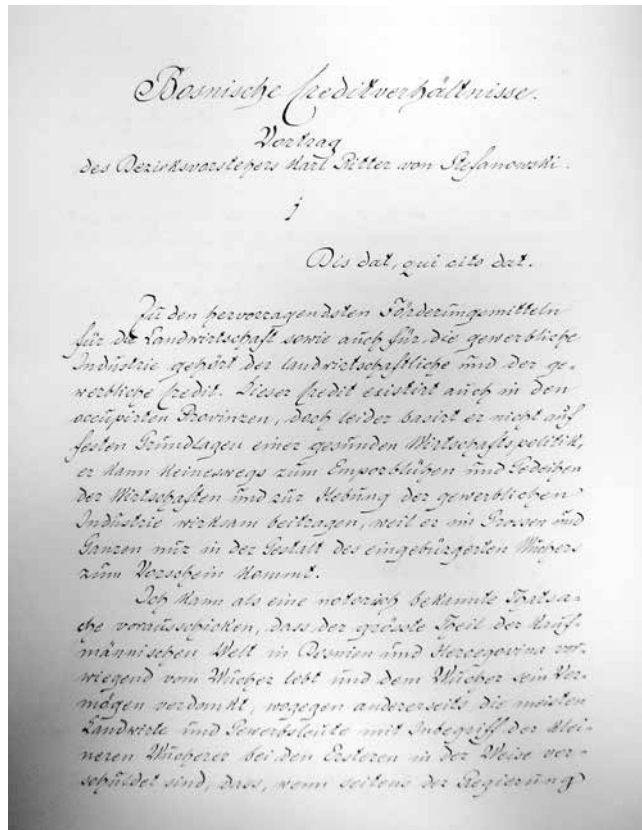 Bosnische Creditverhältnisse.
Vortrag
des Bezirksvorstehers Karl Ritter von Stefanowski.
Bis dat, qui cito dat.
Zu den hervorragendsten Förderungsmitteln
für die Landwirtschaft sowie auch für die gewerbliche
Industrie gehört der landwirtschaftliche und der ge-
werbliche Credit. Dieser Credit existirt auch in den
occupirten Provinzen, doch leider basirt er nicht auf
festen Grundlagen einer gesunden Wirtschaftspolitik,
er kann keineswegs zum Emporblühen und Gedeihen
der Wirtschaften und zur Hebung der gewerblichen
Industrie wirksam beitragen, weil er im Grossen und
Ganzen nur in der Gestalt des eingebürgerten Wuchers
zum Vorschein kommt.
Ich kann als eine notorisch bekannte Thatsa-
che vorausschicken, dass der grösste Theil der kauf-
männischen Welt in Bosnien und Hercegovina vor-
wiegend vom Wucher lebt und dem Wucher sein Ver-
mögen verdankt, wogegen andererseits die meisten
Landwirte und Gewerbsleute mit Inbegriff der klei-
neren Wucherer bei den Ersteren in der Weise ver-
schuldet sind, dass, wenn seitens der Regierung